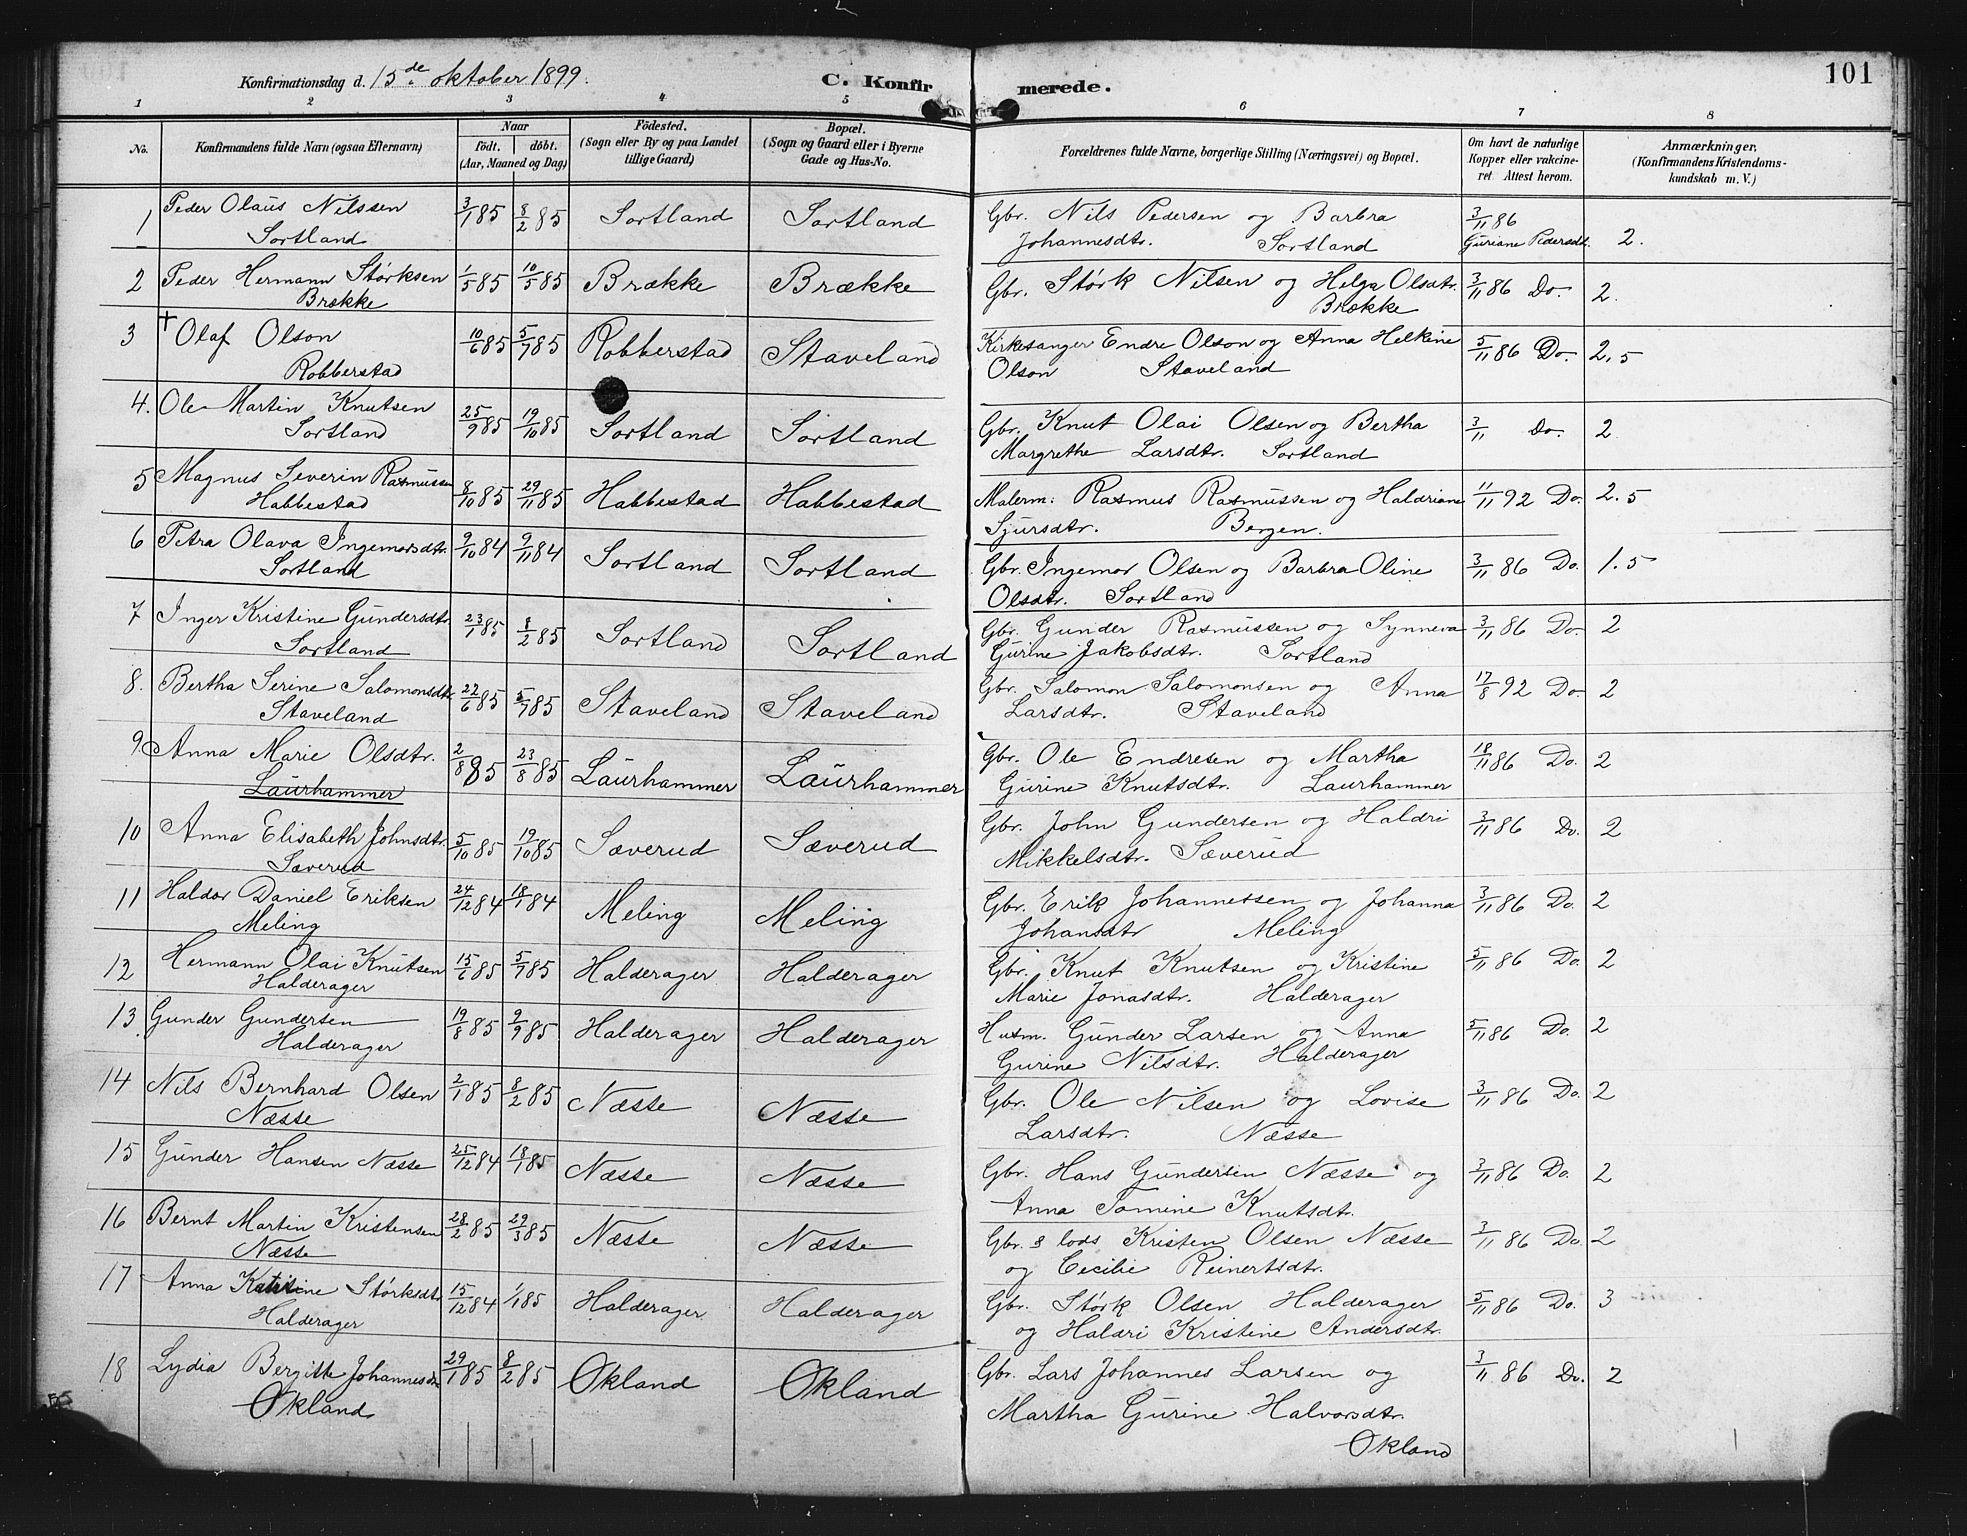 Konfirmationsdag d. 15de oktober 1899. C. Konfirmerede. 101
1 2 3 4 5 6 7 8
No. Konfirmandens fulde Navn (ogsaa Efternavn) Naar födt. döbt. (Aar, Maaned og Dag) Födested. (Sogn eller By og paa Landet tillige Gaard) Bopæl. (Sogn og Gaard eller i Byerne Gade og Hus-No. Forældrenes fulde Navne, borgerlige Stilling (Næringsvei) og Bopæl. Om havt de naturlige Kopper eller vakcineret. Attest herom. Anmærkninger. (Konfirmandens Kristendomskundskab m. V.)
1 Peder Olaus Nilssen 3/1 85 8/2 85 Sortland Sortland Gbr. Nils Pedersen og Barbra 3/11 86
Sortland Johannesdtr. Sortland Guriane Pedersdt. 2.
2 Peder Hermann Størksen 1/5 85 10/5 85 Brække Brække Gbr. Størk Nilsen og Helga Olsdtr. 3/11 86 Do. 2.
Brække Brække
3 † Olaf Olson 10/6 85 5/7 85 Robberstad Staveland Kirkesanger Endre Olson og Anna Helkine 5/11 86 Do. 2.5
Robberstad Olson Staveland
4. Ole Martin Knutsen 25/9 85 19/10 85 Sortland Sortland Gbr. Knut Olai Olsen og Bertha 3/11 Do. 2
Sortland Margrethe Larsdtr. Sortland
5 Magnus Severin Rasmussen 8/10 85 29/11 85 Habbestad Habbestad Malerm. Rasmus Rasmussen og Haldriane 11/11 92 Do. 2.5
Habbestad Sjursdtr. Bergen.
6 Petra Olava Ingemorsdtr. 9/10 84 9/11 84 Sortland Sortland Gbr. Ingemor Olsen og Barbra Oline 3/11 86 Do. 1.5
Sortland Olsdtr. Sortland
7 Inger Kristine Gundersdtr. 23/1 85 8/2 85 Sortland Sortland Gbr. Gunder Rasmussen og Synneva 3/11 86 Do. 2
Sortland Gurine Jakobsdtr. Sortland
8. Bertha Serine Salomonsdtr. 22/6 85 5/7 85 Staveland Staveland Gbr. Salomon Salomonsen og Anna 17/8 92 Do. 2
Staveland Larsdtr. Staveland
9 Anna Marie Olsdtr. 2/8 85 23/8 85 Laurhammer Laurhammer Gbr. Ole Endresen og Martha 18/11 86 Do. 2
Laurhammer Gurine Knutsdtr. Laurhammer
10 Anna Elisabeth Johnsdtr. 5/10 85 19/10 85 Sæverud Sæverud Gbr. John Gundersen og Haldri 3/11 86 Do. 2
Sæverud Mikkelsdtr. Sæverud
11 Haldor Daniel Eriksen 24/12 84 18/1 84 Meling Meling Gbr. Erik Johannessen og Johanna 3/11 86 Do. 2
Meling Johansdtr Meling
12 Hermann Olai Knutsen 15/6 85 5/7 85 Halderager Halderager Gbr. Knut Knutsen og Kristine 5/11 86 Do. 2
Halderager Marie Jonasdtr. Halderager
13. Gunder Gundersen 19/8 85 9/9 85 Halderager Halderager Husm. Gunder Larsen og Anna 5/11 86 Do. 2
Halderager Gurine Nilsdtr. Halderager
14 Nils Bernhard Olsen 2/1 85 8/2 85 Næsse Næsse Gbr. Ole Nilsen og Lovise 3/11 86 Do. 2
Næsse Larsdtr. Næsse
15 Gunder Hansen Næsse 25/12 84 18/1 85 Næsse Næsse Gbr. Hans Gundersen Næsse og 3/11 86 Do. 2
Anna Tomine Knutsdtr.
16 Bernt Martin Kristensen 28/2 85 29/3 85 Næsse Næsse Gbr. & lods Kristen Olsen Næsse 3/11 86 Do. 2
Næsse og Cecilie Reinertsdtr.
17 Anna Størksdtr 15/12 84 1/1 85 Halderager Halderager Gbr. Størk Olsen Halderager 5/11 86 Do. 3
Halderager og Haldri Kristine Andersdtr.
18 Lydia Bergitte Johannesdtr 29/1 85 8/2 85 Økland Økland Gbr. Lars Johannes Larsen og 3/11 86 Do. 2
Økland Martha Gurine Halvorsdtr.
Økland